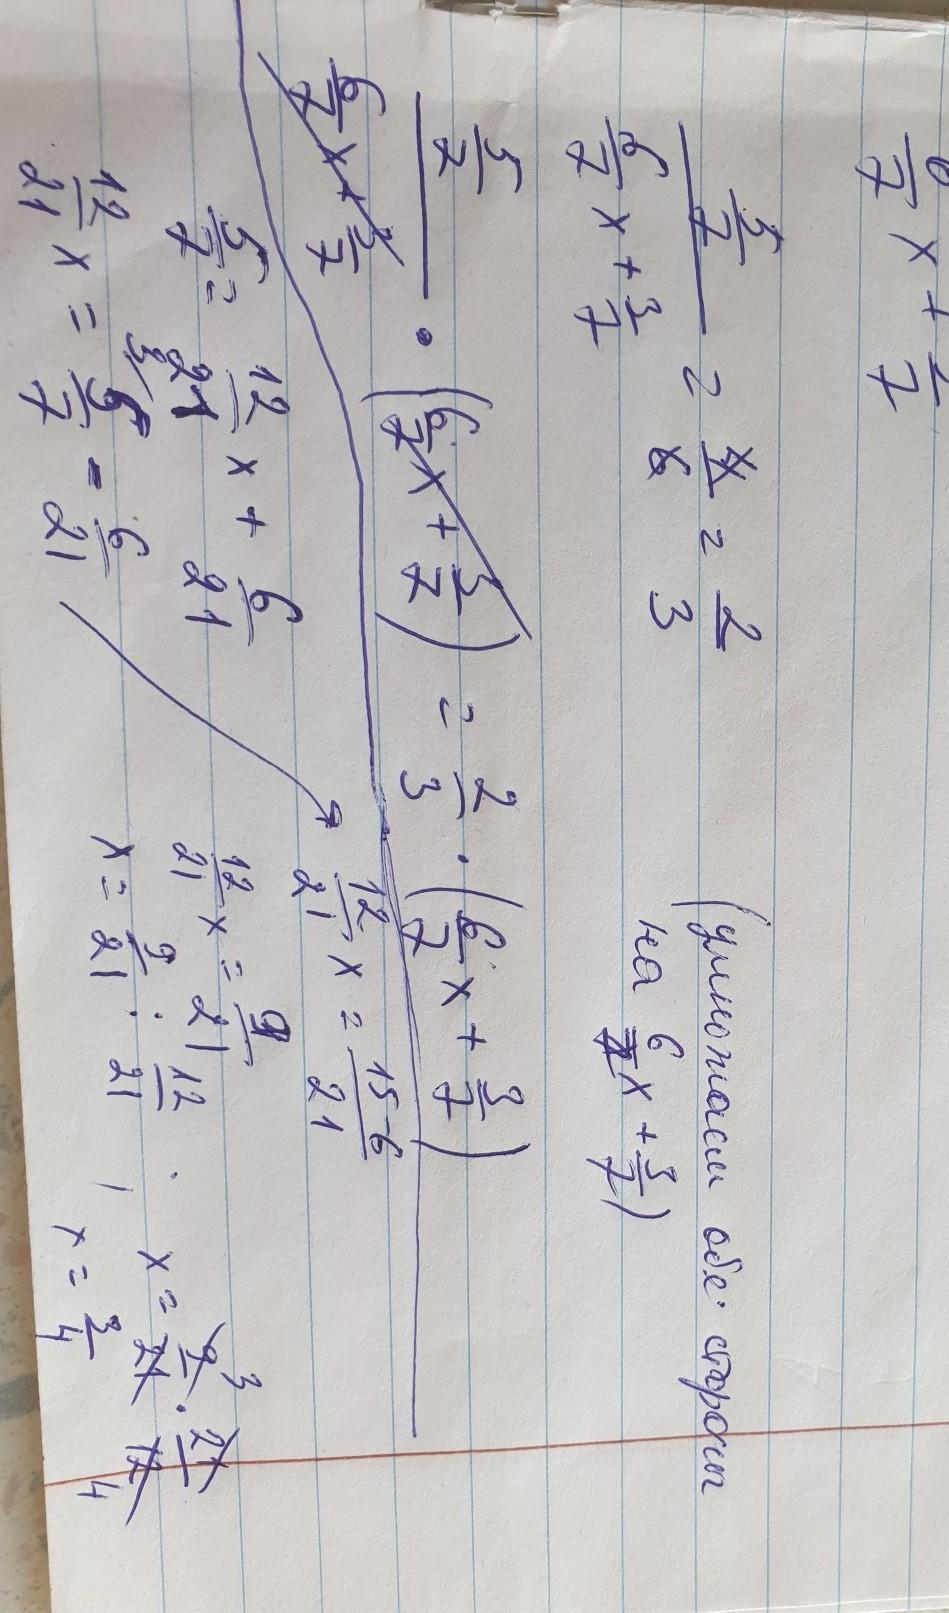 6/7 x + /7
5/7 / (6/7 x + 3/7) = 4/6 = 2/3 (умножаем обе стороны
на 6/7 x + 3/7)
5/7 / (6/7 x + 3/7) · (6/7 x + 3/7) = 2/3 · (6/7 x + 3/7)
5/7 = 12/21 x + 6/21
12/21 x = 5/7 - 6/21
12/21 x = 15-6/21
12/21 x = 9/21
x = 9/21 : 12/21 ; x = 9/21 · 21/12
3
4
x = 3/4